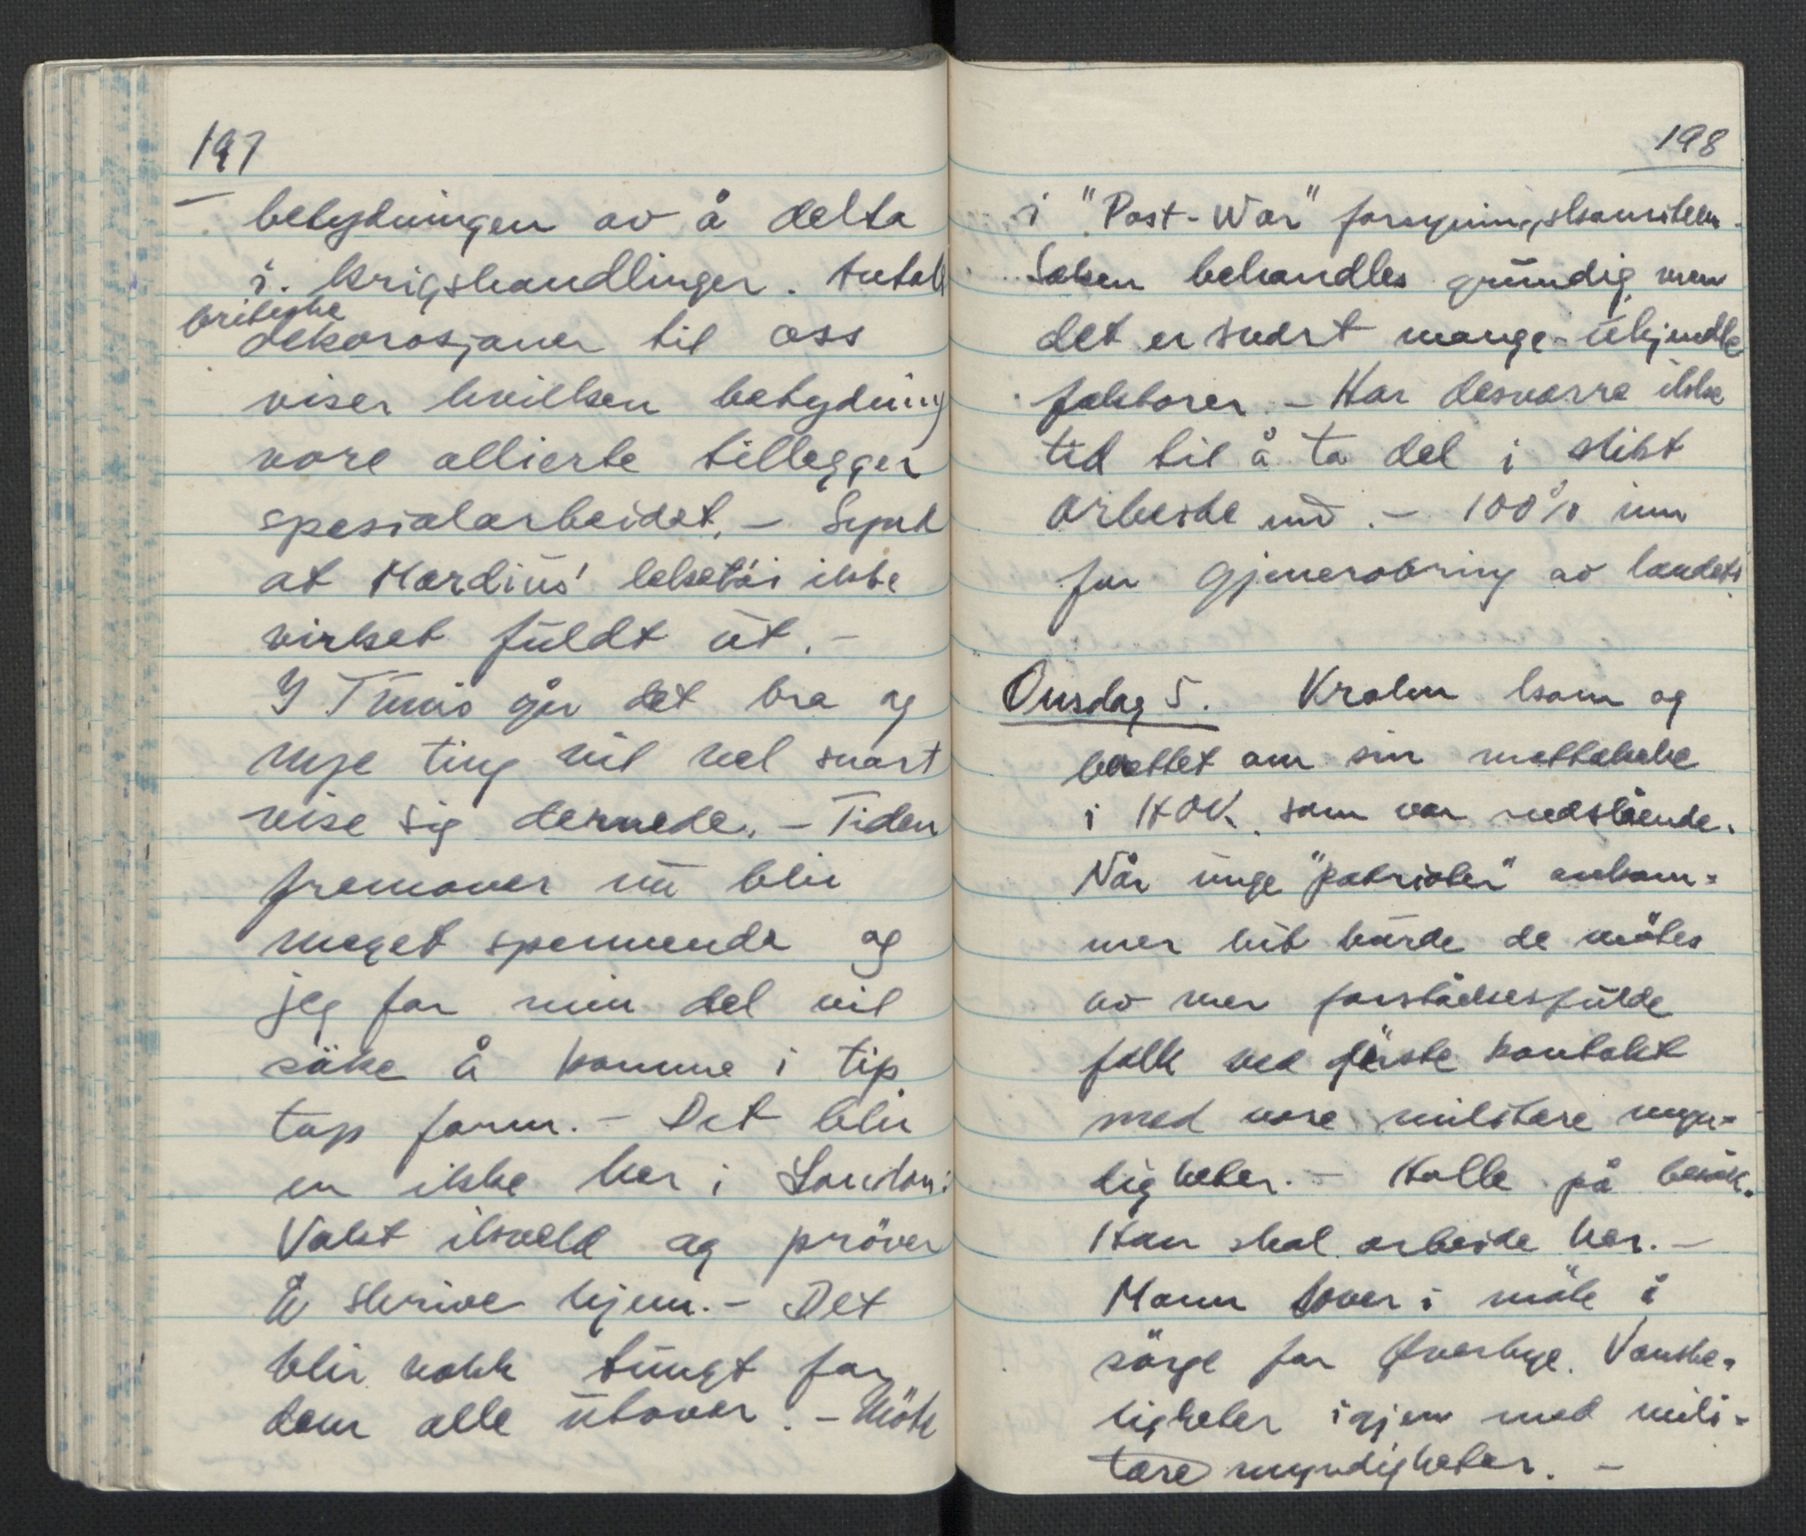 197
betydningen av å delta
i krigshandlinger. Antall
britiske
dekorasjoner til oss
viser hvilken betydning
vore allierte tillegger
spesialarbeidet. – Synd
at Mardius' leketöi ikke
virket fuldt ut. –
I Tunis går det bra og
mye ting vil vel snart
vise sig dernede. – Tiden
fremover nu blir
meget spennende og
jeg for min del vil
söke å komme i tip
top form. – Det blir
en ikke her i London.
Vakt ikveld og pröver
å skrive hjem. – Det
blir nokk tungt for
dem alle utover. – Möte
198
i "Post-War" forsyningskomiteen.
Saken behandles grundig men
det er svært mange ukjendte
faktorer. – Har desværre ikke
tid til å ta del i slikt
arbeide nu. – 100% inn
for gjenerobring av landet.
Onsdag 5. Krohn kom og
berettet om sin mottakelse
i HOK. som var nedslående.
Når unge "patrioter" ankom-
mer hit burde de mötes
av mer forståelsesfulde
folk ved förste kontakt
med vore militære myn-
digheter. – Halle på besök.
Han skal arbeide her. –
Mann lover i möte å
sörge for Øverbye. Vanske-
ligheter igjen med mili-
tære myndigheter. –